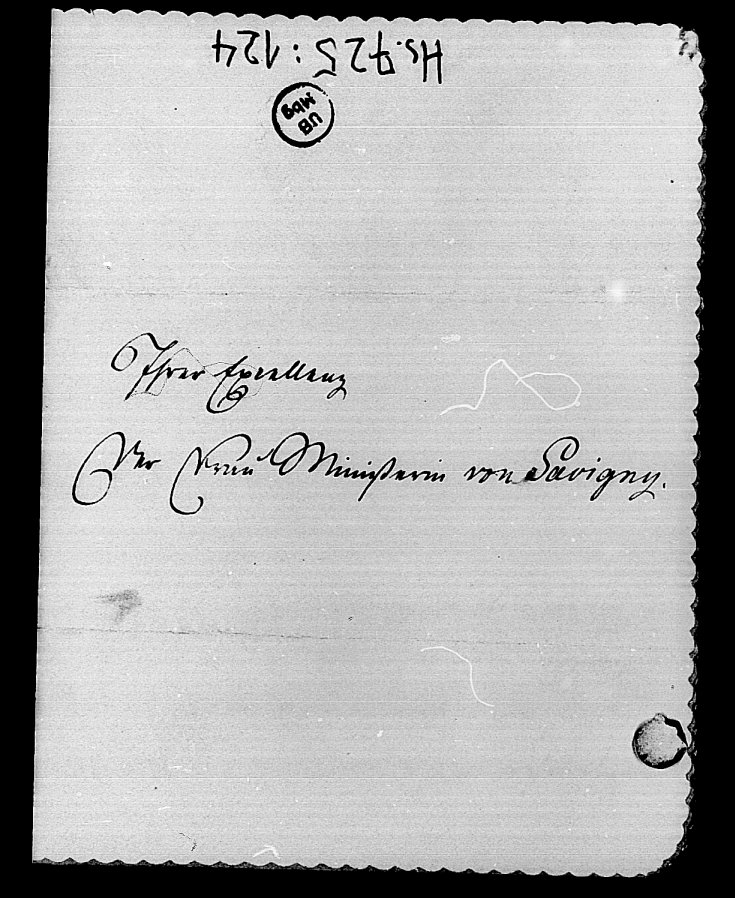 Hs. 725:124
UB
Mbg
Ihrer Excellenz
Der Frau Ministerin von Savigny.